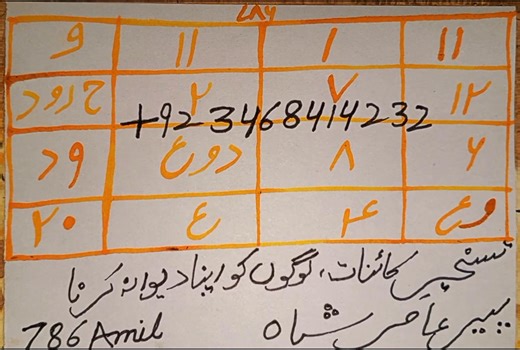 ۷۸۶
۹ ۱۱ ۱ ۱۱
ح رود ۲ ۷ ۱۲
+923468414232
ود دوع ۸ ۶
۲۰ ع ۴ وع
تسخیر کائنات، لوگوں کو اپنا دیوانہ کرنا
پیر عامر شاہ
786 Amil